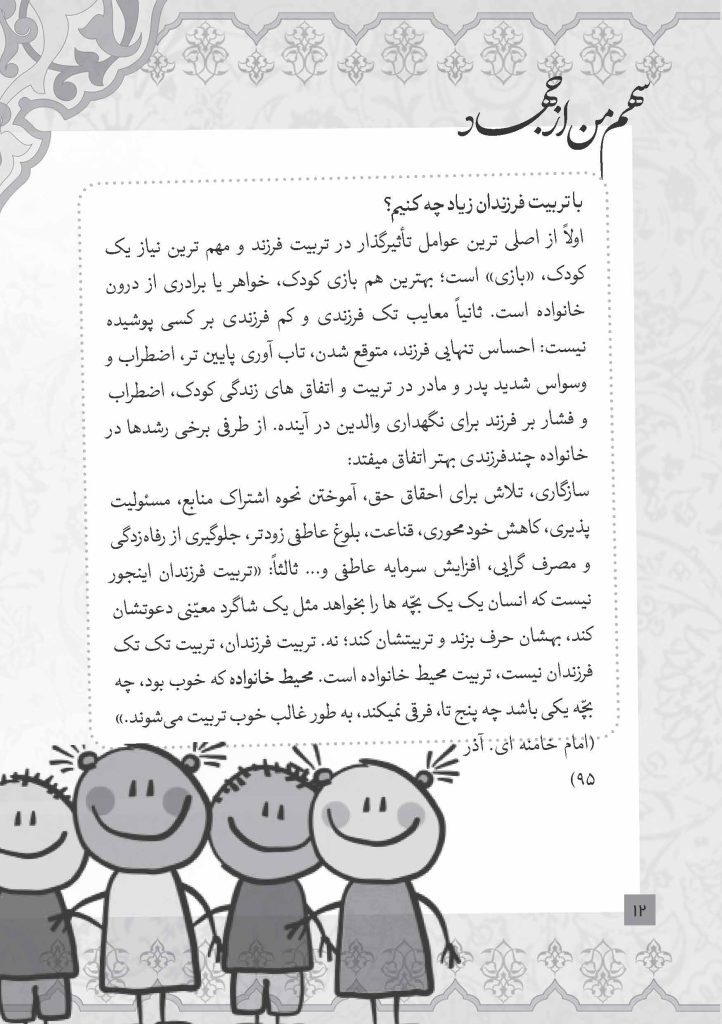 سهم من از جهاد
با تربیت فرزندان زیاد چه کنیم؟
اولاً از اصلی ترین عوامل تأثیرگذار در تربیت فرزند و مهم ترین نیاز یک
کودک، «بازی» است؛ بهترین هم بازی کودک، خواهر یا برادری از درون
خانواده است. ثانیاً معایب تک فرزندی و کم فرزندی بر کسی پوشیده
نیست: احساس تنهایی فرزند، متوقع شدن، تاب آوری پایین تر، اضطراب و
وسواس شدید پدر و مادر در تربیت و اتفاق های زندگی کودک، اضطراب
و فشار بر فرزند برای نگهداری والدین در آینده. از طرفی برخی رشدها در
خانواده چندفرزندی بهتر اتفاق میفتد:
سازگاری، تلاش برای احقاق حق، آموختن نحوه اشتراک منابع، مسئولیت
پذیری، کاهش خودمحوری، قناعت، بلوغ عاطفی زودتر، جلوگیری از رفاه‌زدگی
و مصرف گرایی، افزایش سرمایه عاطفی و... ثالثاً: «تربیت فرزندان اینجور
نیست که انسان یک یک بچّه ها را بخواهد مثل یک شاگرد معیّنی دعوتشان
کند، بهشان حرف بزند و تربیتشان کند؛ نه. تربیت فرزندان، تربیت تک تک
فرزندان نیست، تربیت محیط خانواده است. محیط خانواده که خوب بود، چه
بچّه یکی باشد چه پنج تا، فرقی نمیکند، به طور غالب خوب تربیت می‌شوند.»
(امام خامنه ای. آذر
۹۵)
۱۲